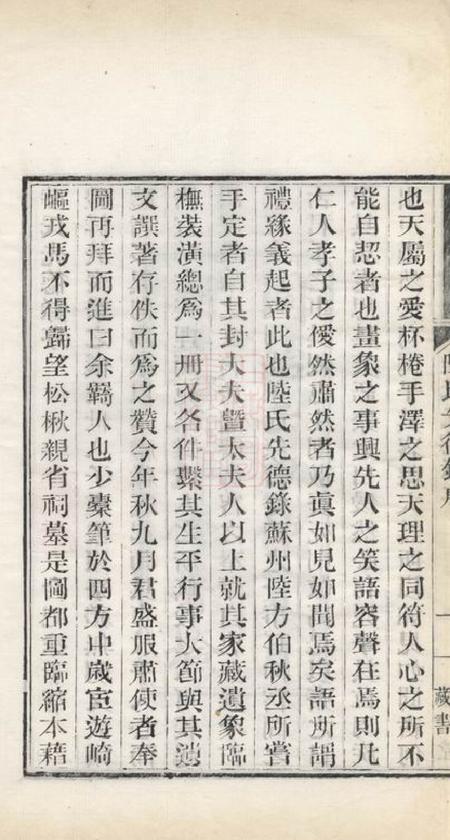 一
藏書
也天屬之愛桮棬手澤之思天理之同符人心之所不
能自恝者也畫象之事興先人之笑語容聲在焉則凡
仁人孝子之僾然肅然者乃眞如見如聞焉矣語所謂
禮緣義起者此也陸氏先德錄蘇州陸方伯秋丞所嘗
手定者自其封大夫曁太夫人以上就其家藏遺象臨
橅裝潢總爲一冊又各件繫其生平行事大節與其遺
文譔著存佚而爲之贊今年秋九月君盛服肅使者奉
圖再拜而進曰余羇人也少橐筆於四方中歲宦遊崎
嶇戎馬不得歸望松楸親省祠墓是圖都重臨縮本藉